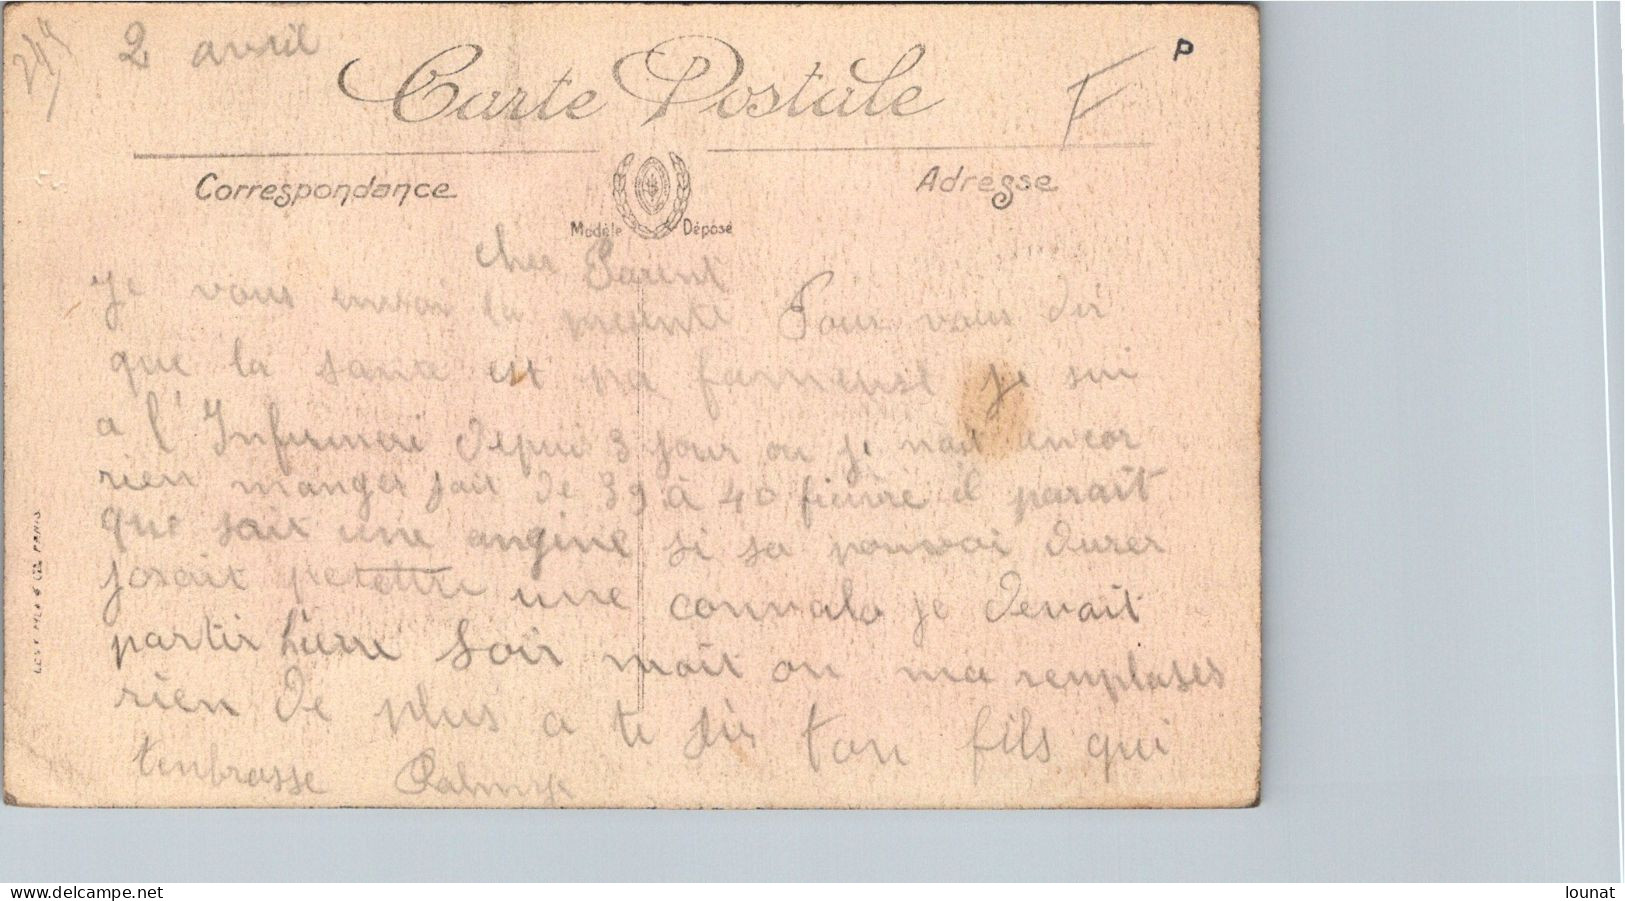 2 avril
P
Carte Postale
F
Correspondance
Adresse
Modèle Déposé
Cher Parent
Je vous envoai la presente Pour vous dir
que la sante est pa fameuse je sui
a l'Infirmeri depui 3 jour ou je nait encor
rien manger jait de 39 à 40 fieuvre il parait
que sait une angine si sa pouvai durer
josait petettre une convalo je devait
partir hierre soir mait on ma remplases
rien de plus a te dir ton fils qui
tenbrasse Palmyr
& Cie PARIS
delcampe.net
lounat